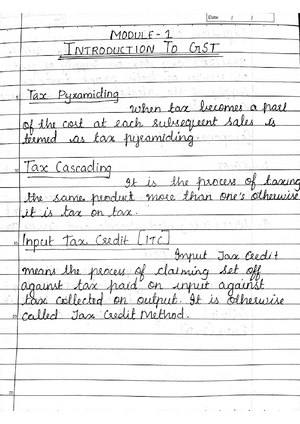 Date / /
MODULE-1
INTRODUCTION TO GST
Tax Pyramiding
When tax becomes a part
of the cost at each subsequent sales is
termed as tax pyramiding.
Tax Cascading
It is the process of taxing
the same product more than one's otherwise
it is tax on tax.
Input Tax Credit [ITC]
Input Tax Credit
means the process of claiming set off
against tax paid on input against
tax collected on output. It is otherwise
called Tax Credit Method.